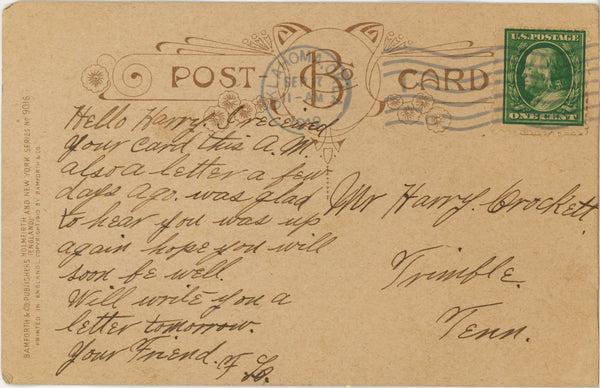 POST CARD
B
U.S. POSTAGE
ONE CENT
OKLAHOMA, OKLA.
Hello Harry. I received
your card this A.M.
also a letter a few
days ago. was glad
to hear you was up
again hope you will
soon be well.
Will write you a
letter tomorrow.
Your Friend.
Mr Harry Crockett.
Trimble.
Tenn.
BAMFORTH & CO. PUBLISHERS HOLMFIRTH (ENGLAND) AND NEW YORK SERIES Nº 9016
PRINTED IN ENGLAND. COPYRIGHT 1910 BY BAMFORTH & CO.